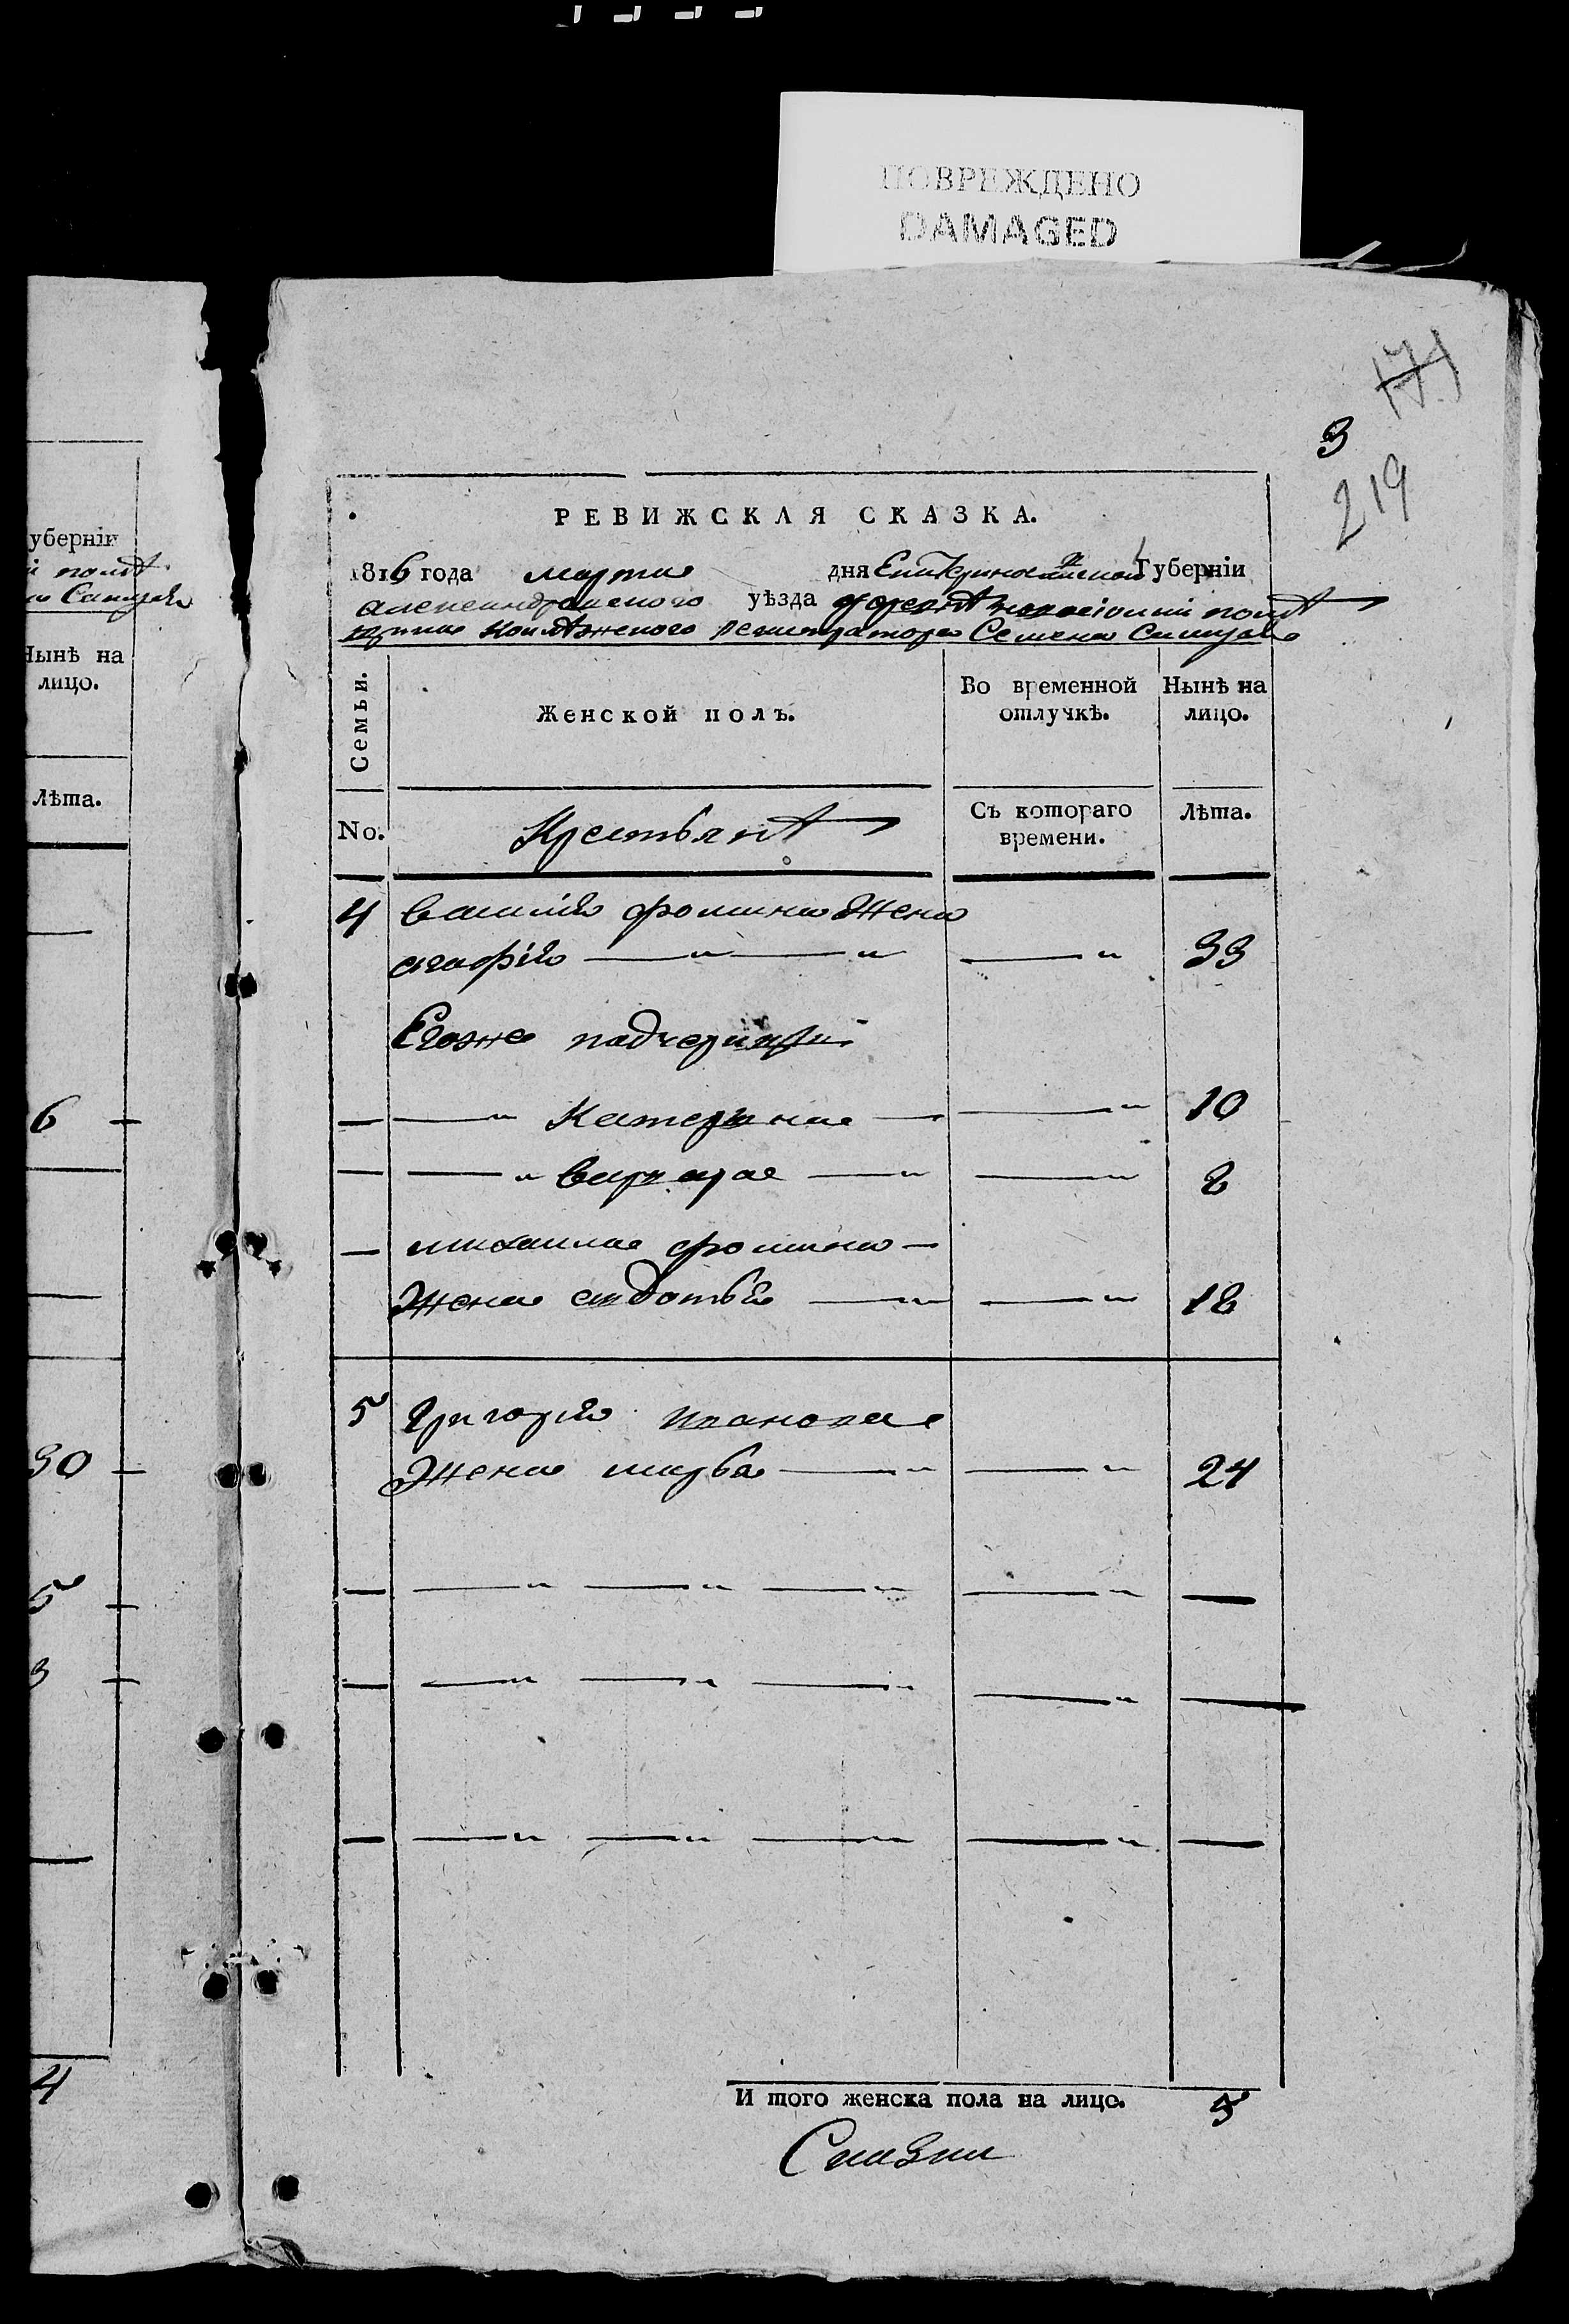 ПОВРЕЖДЕНО
DAMAGED
171
3
219
РЕВИЖСКАЯ СКАЗКА.
1816 года марта дня Екатеринославской Губерніи
александровского уѣзда
колѣжского регистратора Семена
Семьи.
Женской полъ.
Во временной
отлучкѣ.
Нынѣ на
лицо.
No.
Крестьянѣ
Съ котораго
времени.
Лѣта.
4 василія фомина Жена
агафія 33
Егоже падчерицы
Катерина 10
варвара 8
михаила фомина
Жена авдотья 18
5 Григорія иванова
Жена марья 24
И того женска пола на лицо. 5
уберніи
Нынѣ на
лицо.
Лѣта.
6
30
5
3
4